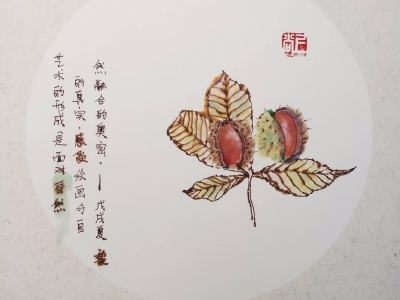 艺术的形成是面对自然
的真实,感受绘画与自
然融合的奥密.— 戊戌夏